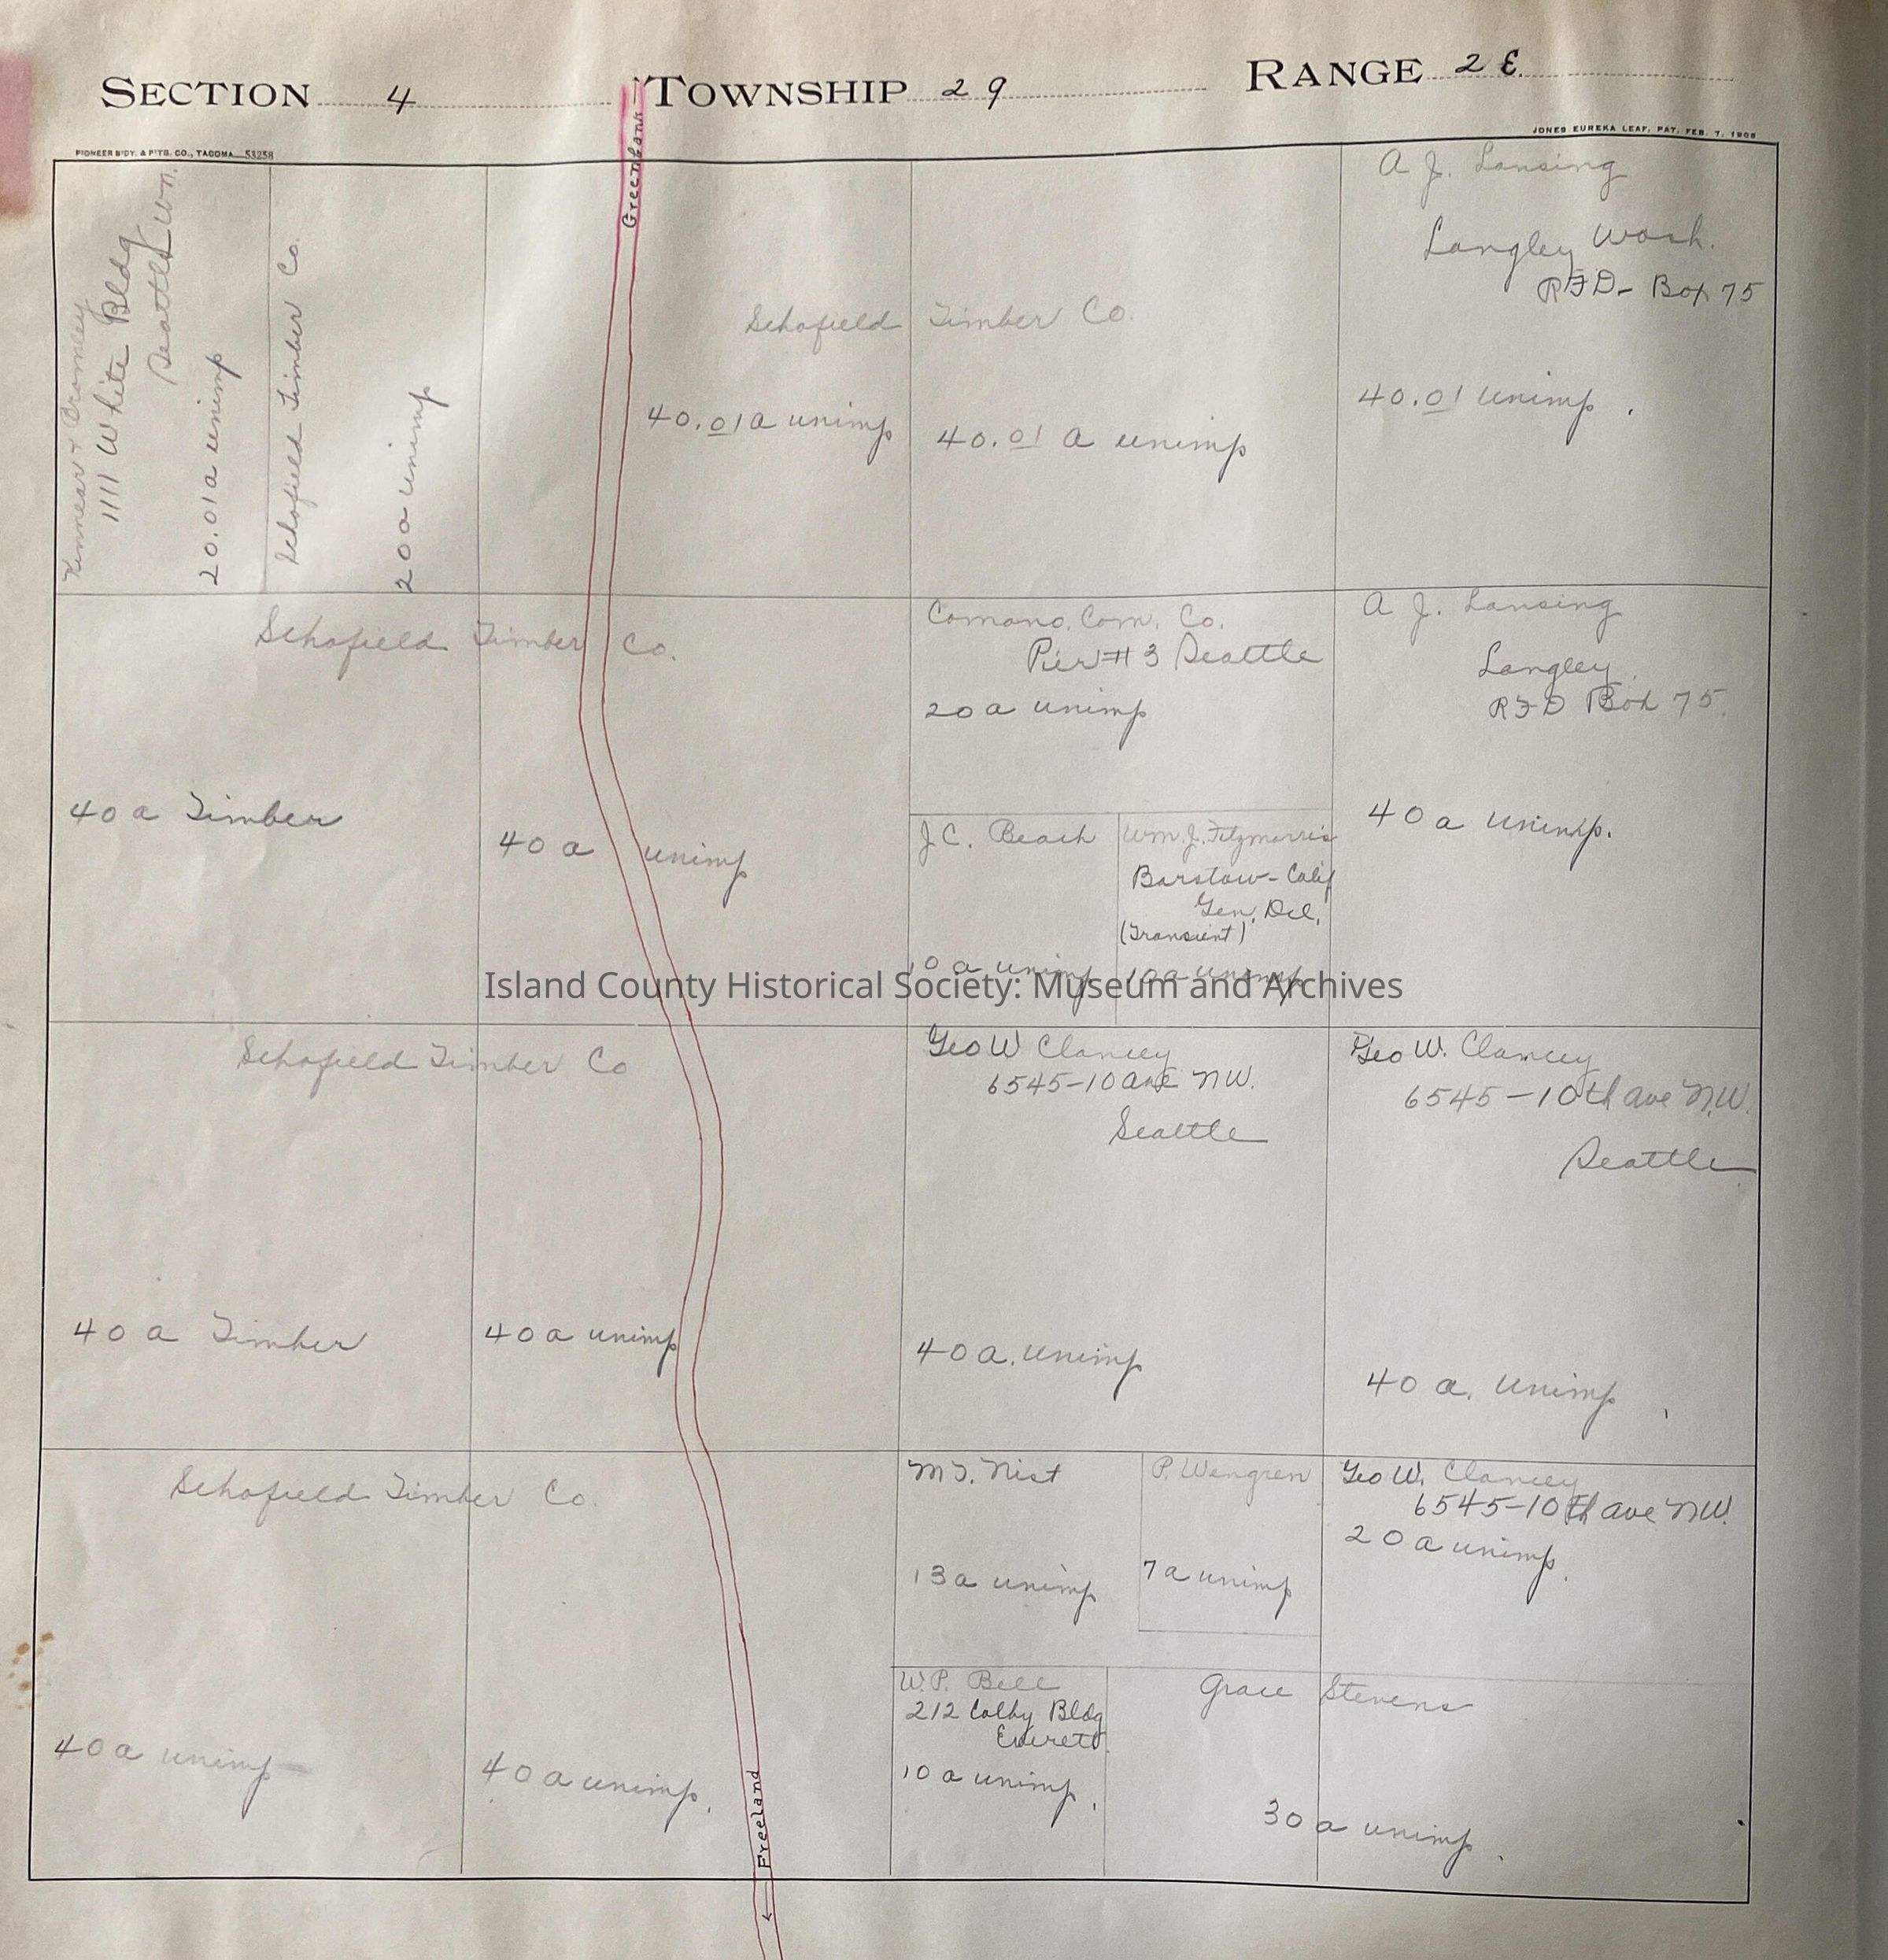 SECTION 4 TOWNSHIP 29 RANGE 2 E.
PIONEER B'DY. & P'T'G. CO., TACOMA 53258
JONES EUREKA LEAF, PAT. FEB. 7, 1905
Greenbank
Kinnear & Bromley
1111 White Bldg
Seattle Wn.
20.01a unimp
Schofield Timber Co.
20a unimp
Schofield Timber Co.
40.01a unimp
40.01 a unimp
A J. Lansing
Langley Wash.
RFD- Box 75
40.01 unimp.
Schofield Timber Co.
40 a Timber
40 a unimp
Comano Com. Co.
Pier #3 Seattle
20 a unimp
J C. Beach
10 a unimp
Wm. J. Fitzmorris
Barstow- Calif
Gen. Del.
(Transient)
10a unimp
A J. Lansing
Langley
RFD Box 75.
40 a unimp.
Island County Historical Society: Museum and Archives
Schofield Timber Co
40 a Timber
40 a unimp
Geo W Clancey
6545-10 ave NW.
Seattle
40 a. unimp
Geo W. Clancey
6545-10th ave N.W.
Seattle
40 a. unimp
Schofield Timber Co.
40 a unimp
40 a unimp.
M T. Nist
13a unimp
P. Wengren
7a unimp
Geo W. Clancey
6545-10th ave NW.
20 a unimp.
W. P. Bell
212 Colby Bldg
Everett
10 a unimp.
Grace Stevens
30 a unimp.
← Freeland